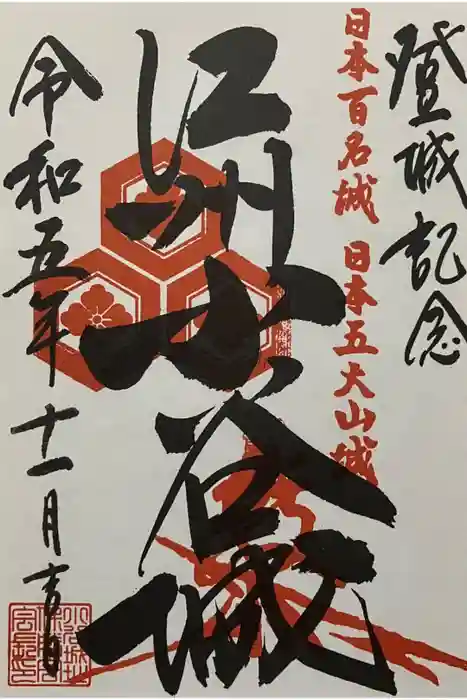 登城記念
日本百名城 日本五大山城
江州小谷城
令和五年十一月吉日